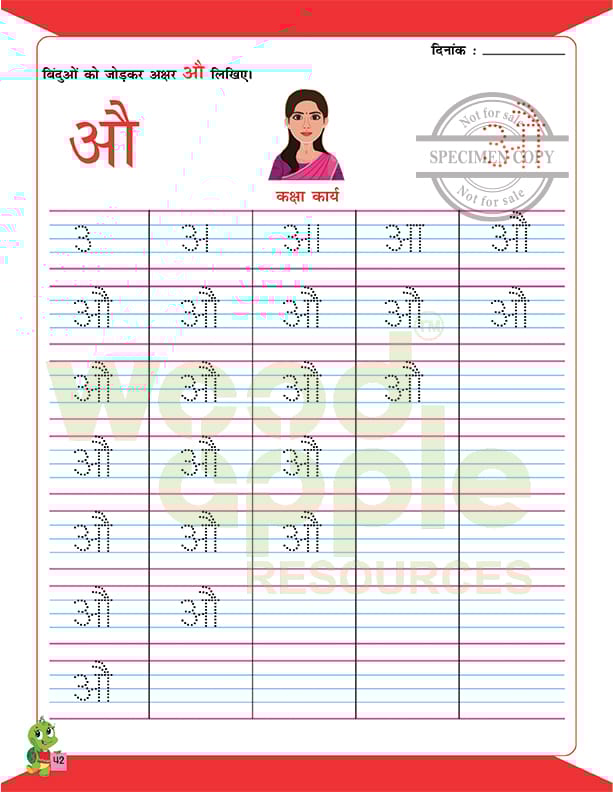 दिनांक :
बिंदुओं को जोड़कर अक्षर औ लिखिए।
औ
औ
Not for sale
SPECIMEN COPY
Not for sale
कक्षा कार्य
उ अ अा आ औ
औ औ औ औ औ
औ औ औ औ
औ औ औ
औ औ औ
औ औ
औ
wood
apple
RESOURCES
TM
५२